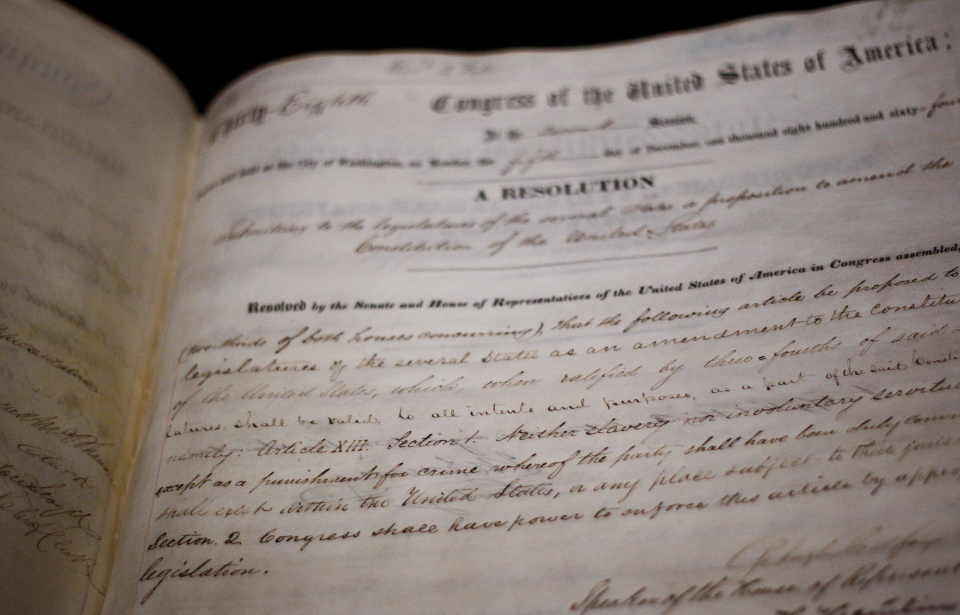 Thirty-Eighth Congress of the United States of America;
At the Second Session,
held at the City of Washington, on Monday the fifth day of December, one thousand eight hundred and sixty-four
A RESOLUTION
Submitting to the legislatures of the several States a proposition to amend the
Constitution of the United States
Resolved by the Senate and House of Representatives of the United States of America in Congress assembled,
(two-thirds of both houses concurring), That the following article be proposed to
legislatures of the several States as an amendment to the Constitu
of the United States, which, when ratified by three-fourths of said
latures, shall be valid, to all intents and purposes, as a part of the said Consti
namely: Article XIII. Section 1. Neither slavery nor involuntary servitud
except as a punishment for crime whereof the party shall have been duly convic
shall exist within the United States, or any place subject to their juris
Section 2. Congress shall have power to enforce this article by appro
legislation.
Speaker of the House of Represent